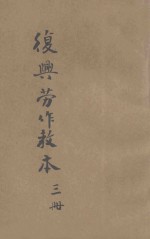 復興劳作教本
三冊